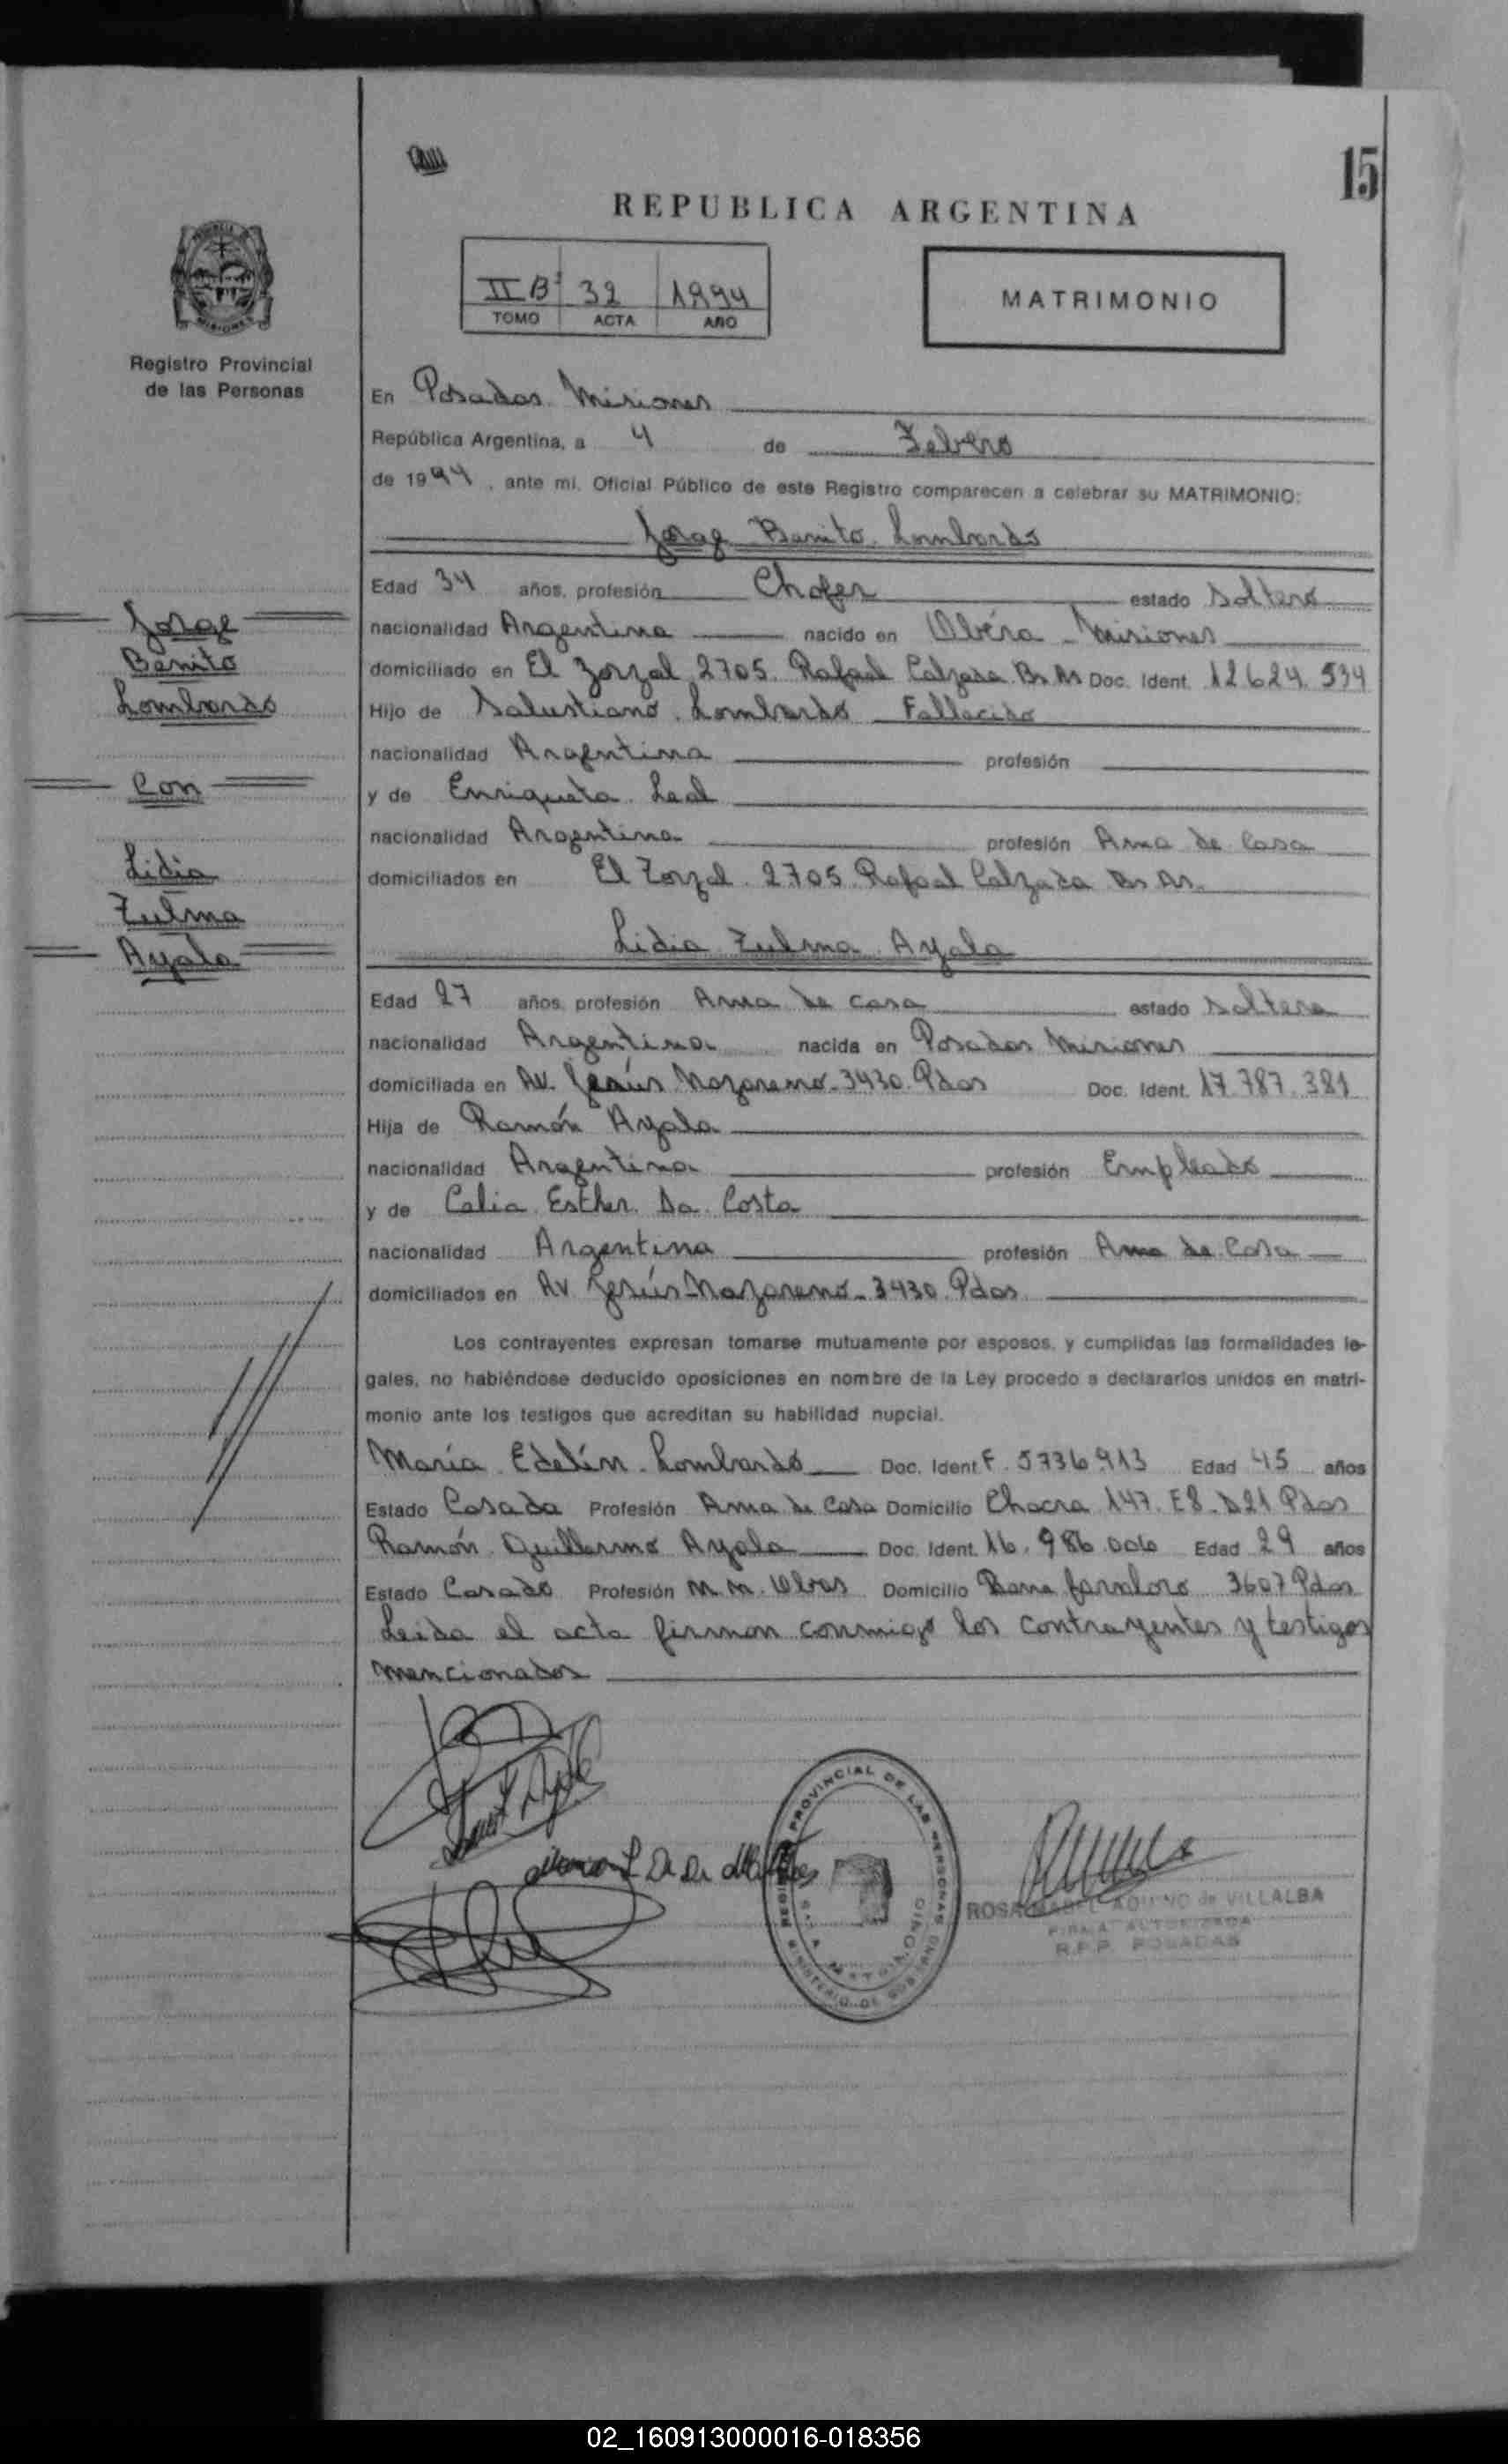 15
REPUBLICA ARGENTINA
II Bº 32 1994
TOMO ACTA AÑO
MATRIMONIO
Registro Provincial
de las Personas
En Posadas Misiones
República Argentina, a 4 de Febrero
de 1994, ante mí, Oficial Público de este Registro comparecen a celebrar su MATRIMONIO:
Jorge Benito Lombardo
Edad 34 años, profesión Chofer estado Soltero
nacionalidad Argentina nacido en Oberá - Misiones
domiciliado en El Zorzal 2705 Rafael Calzada Bs As Doc. Ident. 12624.534
Hijo de Salustiano Lombardo Fallecido
nacionalidad Argentina profesión
y de Enriqueta Leal
nacionalidad Argentina profesión Ama de Casa
domiciliados en El Zorzal 2705 Rafael Calzada Bs As.
Lidia Zulma Ayala
Edad 27 años, profesión Ama de casa estado Soltera
nacionalidad Argentina nacida en Posadas Misiones
domiciliada en Av. Jesús Nazareno - 3430 Pdas Doc. Ident. 17.787.381
Hija de Ramón Ayala
nacionalidad Argentina profesión Empleado
y de Celia Esther Da Costa
nacionalidad Argentina profesión Ama de Casa
domiciliados en Av Jesús Nazareno - 3430 Pdas
Los contrayentes expresan tomarse mutuamente por esposos, y cumplidas las formalidades le-
gales, no habiéndose deducido oposiciones en nombre de la Ley procedo a declararlos unidos en matri-
monio ante los testigos que acreditan su habilidad nupcial.
María Edelín Lombardo Doc. Ident F. 5736913 Edad 45 años
Estado Casada Profesión Ama de Casa Domicilio Chacra 147. E8. D21 Pdas
Ramón Guillermo Ayala Doc. Ident. 16.986.006 Edad 29 años
Estado Casado Profesión M. M. Obras Domicilio 3607 Pdas
Leida el acta firman conmigo los contrayentes y testigos
mencionados
Jorge
Benito
Lombardo
Con
Lidia
Zulma
Ayala
REGISTRO PROVINCIAL DE LAS PERSONAS
MINISTERIO DE GOBIERNO
MATRIMONIO
ROSA MABEL AQUINO de VILLALBA
FIRMA AUTORIZADA
R.P.P. POSADAS
02_160913000016-018356